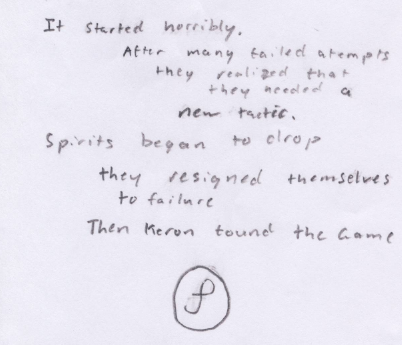 It started horribly.
After many failed atempts
they realized that
they needed a
new tactic.
Spirits began to drop
they resigned themselves
to failure
Then Keron found the Game